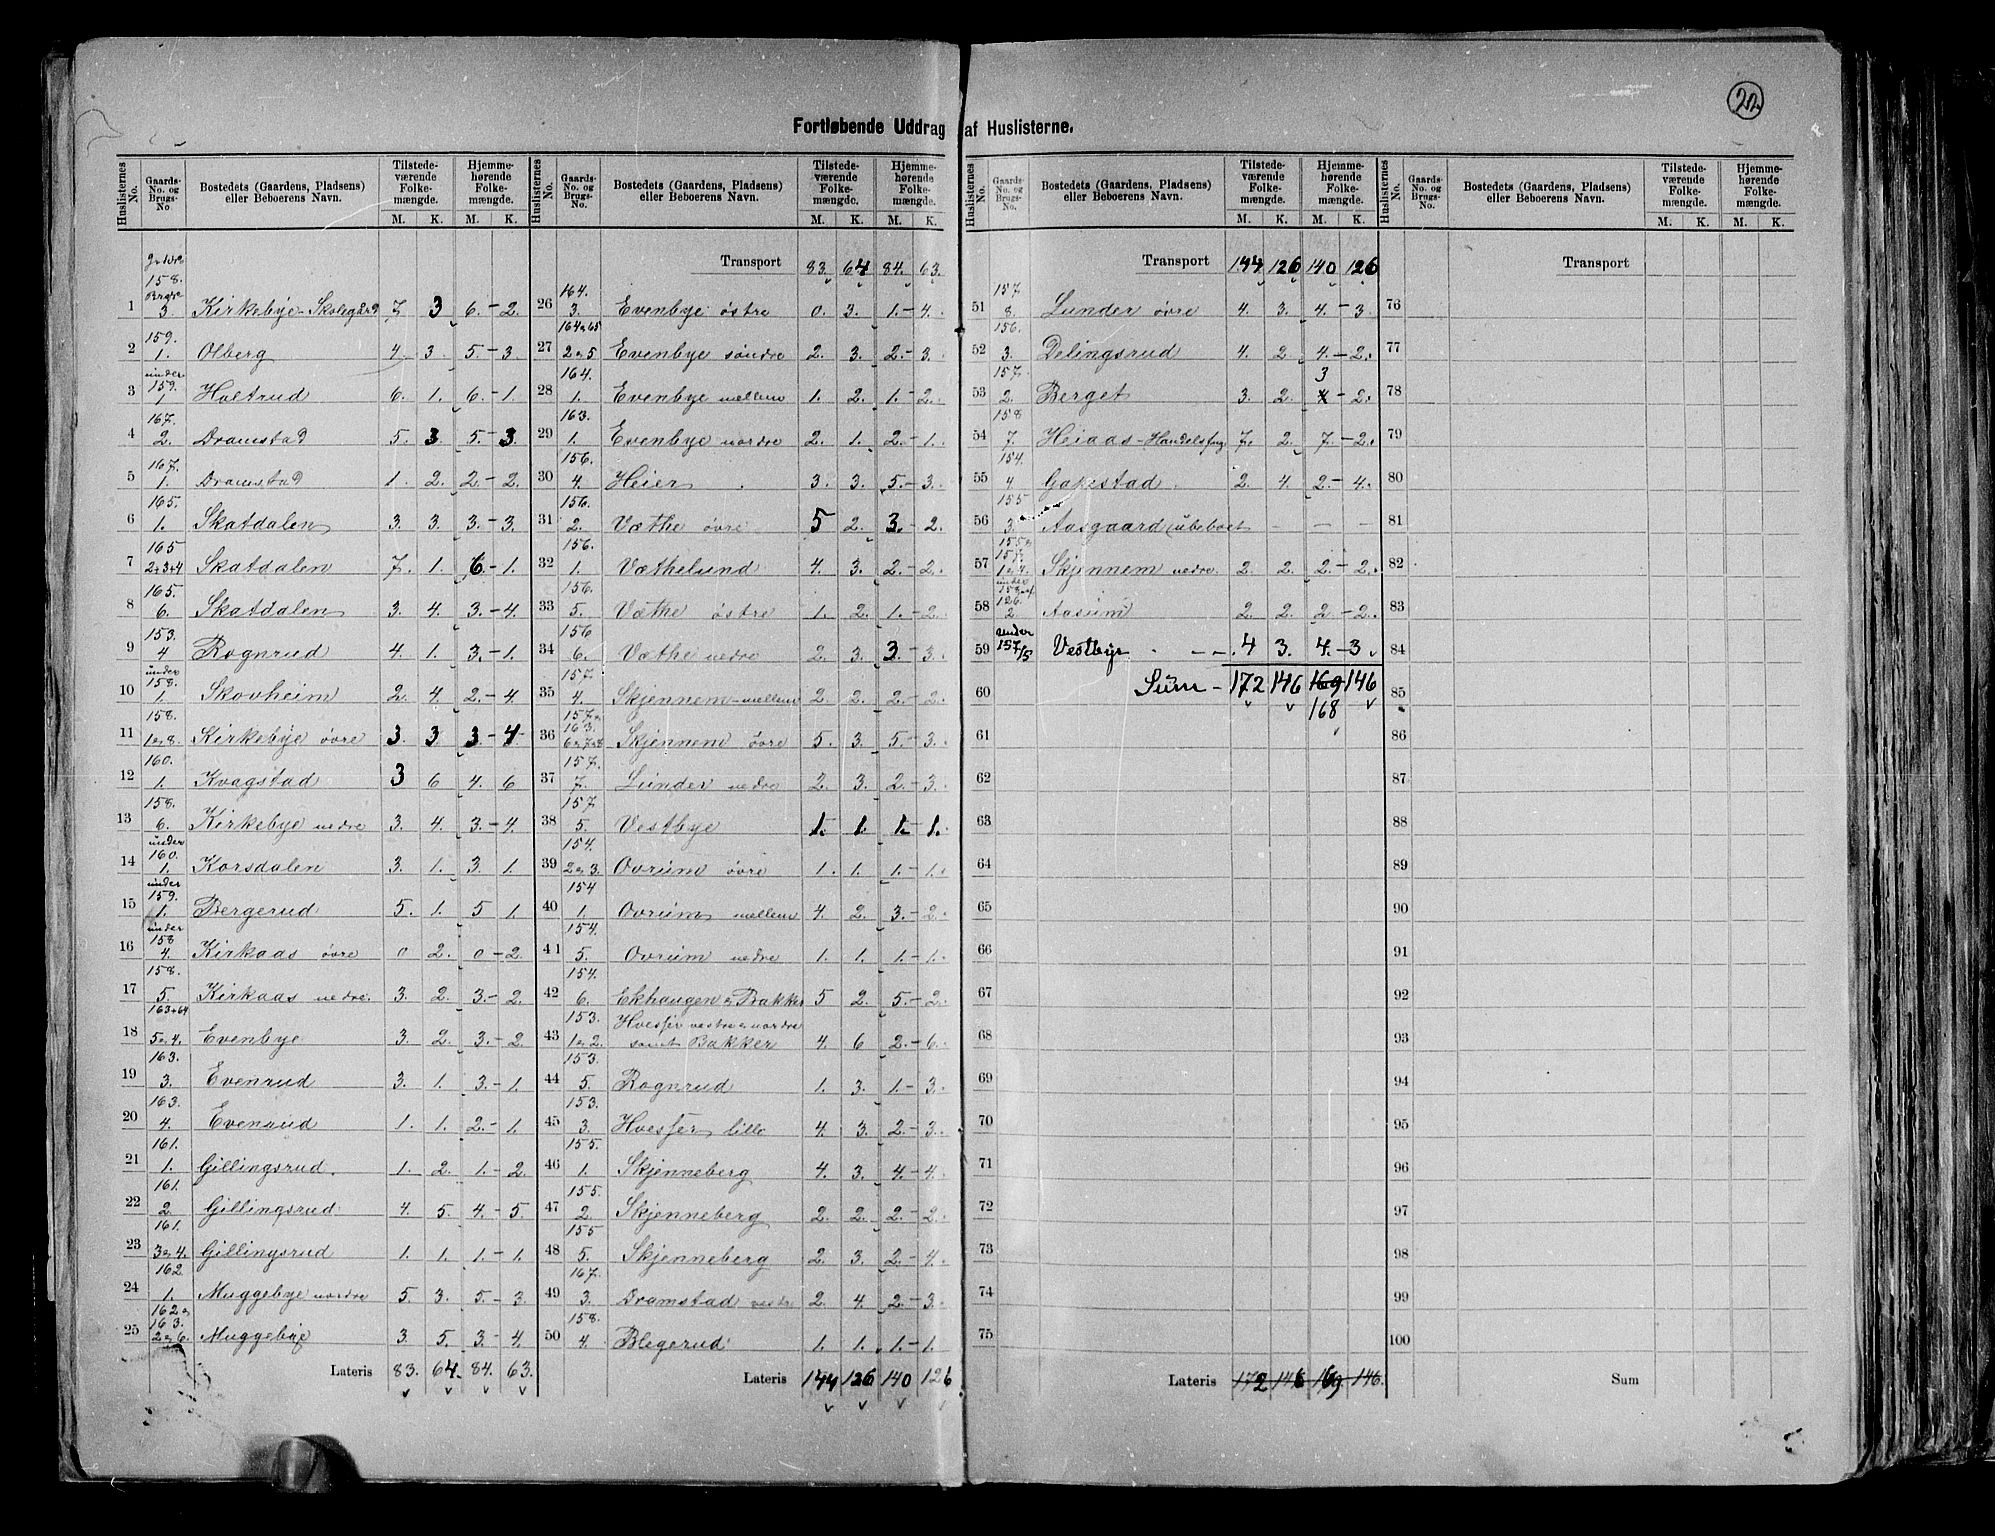 22.
Fortløbende Uddrag af Huslisterne.
Huslisternes No. Gaards-No. og Brugs-No. Bostedets (Gaardens, Pladsens) eller Beboerens Navn. Tilstedeværende Folkemængde. M. K. Hjemmehørende Folkemængde. M. K.
1 158. 3 Kirkebye-Skolegård 7 3 6.-2.
2 159. 1. Olberg 4. 3. 5.-3.
3 under 159. 1 Holtrud 6. 1. 6.-1.
4 167. 2. Dramstad 5. 3. 5.-3.
5 167. 1. Dramstad 1. 2. 2.-2.
6 165. 1. Skatdalen 3. 3. 3.-3.
7 165 2+3+4 Skatdalen 7. 1. 6.-1.
8 165 6. Skatdalen 3. 4. 3.-4.
9 153. 4 Rognrud 4. 1. 3.-1.
10 under 158. 1. Skovheim 2. 4. 2.-4.
11 158. 1 og 8. Kirkebye øvre 3. 3 3-4.
12 160. 1. Kvagstad 3 6 4. 6
13 158. 6. Kirkebye nedre 3. 4. 3.-4.
14 under 160. 1. Korsdalen 3. 1. 3. 1.
15 under 159. 1. Bergerud 5. 1. 5 1.
16 under 158 4. Kirkaas øvre 0 2. 0-2.
17 158. 5. Kirkaas nedre. 3. 2. 3.-2.
18 163+64 5 og 4. Evenbye 3. 2. 3.-2.
19 163. 3. Evenrud 3. 1. 3.-1.
20 163. 4. Evenrud 1. 1. 2.-1.
21 161. 1. Gillingsrud. 1. 2. 1.-2.
22 161. 2. Gillingsrud 4. 5. 4.-5.
23 161. 3 og 4. Gillingsrud 1. 1. 1.-1.
24 162. 1. Muggebye nordre 5. 3. 5.-3.
25 162 og 163. 2 og 6. Muggebye 3. 5. 3.-4.
Lateris 83. 64. 84. 63.
Huslisternes No. Gaards-No. og Brugs-No. Bostedets (Gaardens, Pladsens) eller Beboerens Navn. Tilstedeværende Folkemængde. M. K. Hjemmehørende Folkemængde. M. K.
Transport 83. 64 84. 63.
26 164. 3. Evenbye østre 0. 3. 1.-4.
27 164 og 65 2 og 5 Evenbye søndre 2. 3. 2.-3.
28 164. 1. Evenbye mellem 1. 2. 1.-2.
29 163. 1. Evenbye nordre 2. 1. 2.-1.
30 156. 4. Heier 3. 3. 5.-3.
31 156. 2. Væthe øvre 5 2. 3.-2.
32 156. 1. Væthelund 4. 3. 2.-2.
33 156. 5. Væthe østre 1. 2. 1.-2.
34 156 6. Væthe nedre 2. 3. 3.-3.
35 157. 4. Skjennem-mellem 2. 2. 2.-2.
36 157 og 163. 6 og 7 og 8 Skjennem øvre 5. 3. 5.-3.
37 157. 7. Lunder nedre 2. 3. 2.-3.
38 157 5. Vestbye 1. 1. 1.-1.
39 154. 2 og 3. Ovrum øvre 1. 1. 1.-1.
40 154 1. Ovrum mellem 4. 2. 3.-2.
41 154. 5. Ovrum nedre 1. 1. 1.-1.
42 154. 6. Ekhaugen og Bakker 5 2. 5.-2.
43 153. 1 og 2. Hvesser vestre og nordre samt Bakker 4. 6 2.-6.
44 153. 5. Rognrud 1. 3. 1.-3.
45 153. 3. Hvesser lille 4. 3. 2.-3.
46 155. 1. Skjenneberg 4. 3. 4.-4.
47 155. 2. Skjenneberg 2. 2. 2.-2.
48 155 5. Skjenneberg 2. 3. 2.-4.
49 167. 3. Dramstad vestre 2. 4. 2.-3.
50 158. 4. Blegerud 1. 1. 1.-1.
Lateris 144 126 140 126
Huslisternes No. Gaards-No. og Brugs-No. Bostedets (Gaardens, Pladsens) eller Beboerens Navn. Tilstedeværende Folkemængde. M. K. Hjemmehørende Folkemængde. M. K.
Transport 144 126 140 126
51 157 8. Lunder øvre 4. 3. 4.-3.
52 156. 3. Delingsrud 4. 2. 4.-2.
53 157. 2. Berget 3. 2. 3 4-2.
54 158 7. Heiaas-Handelsfag 7. 2. 7.-2.
55 154. 4 Gakestad. 2. 4. 2.-4.
56 155 3. Aasgaard (ubeboet - - -
57 1 og 4. Skjennem nedre 2. 2. 2.-2.
58 under 2. Aasum 2. 2. 2.-2.
59 under 157/5 Vestbye - - - 4 3. 4.-3
60 Süm - 172 146 169 146
168
61
62
63
64
65
66
67
68
69
70
71
72
73
74
75
Lateris 172 146 169 146.
Huslisternes No. Gaards-No. og Brugs-No. Bostedets (Gaardens, Pladsens) eller Beboerens Navn. Tilstedeværende Folkemængde. M. K. Hjemmehørende Folkemængde. M. K.
Transport
76
77
78
79
80
81
82
83
84
85
86
87
88
89
90
91
92
93
94
95
96
97
98
99
100
Sum